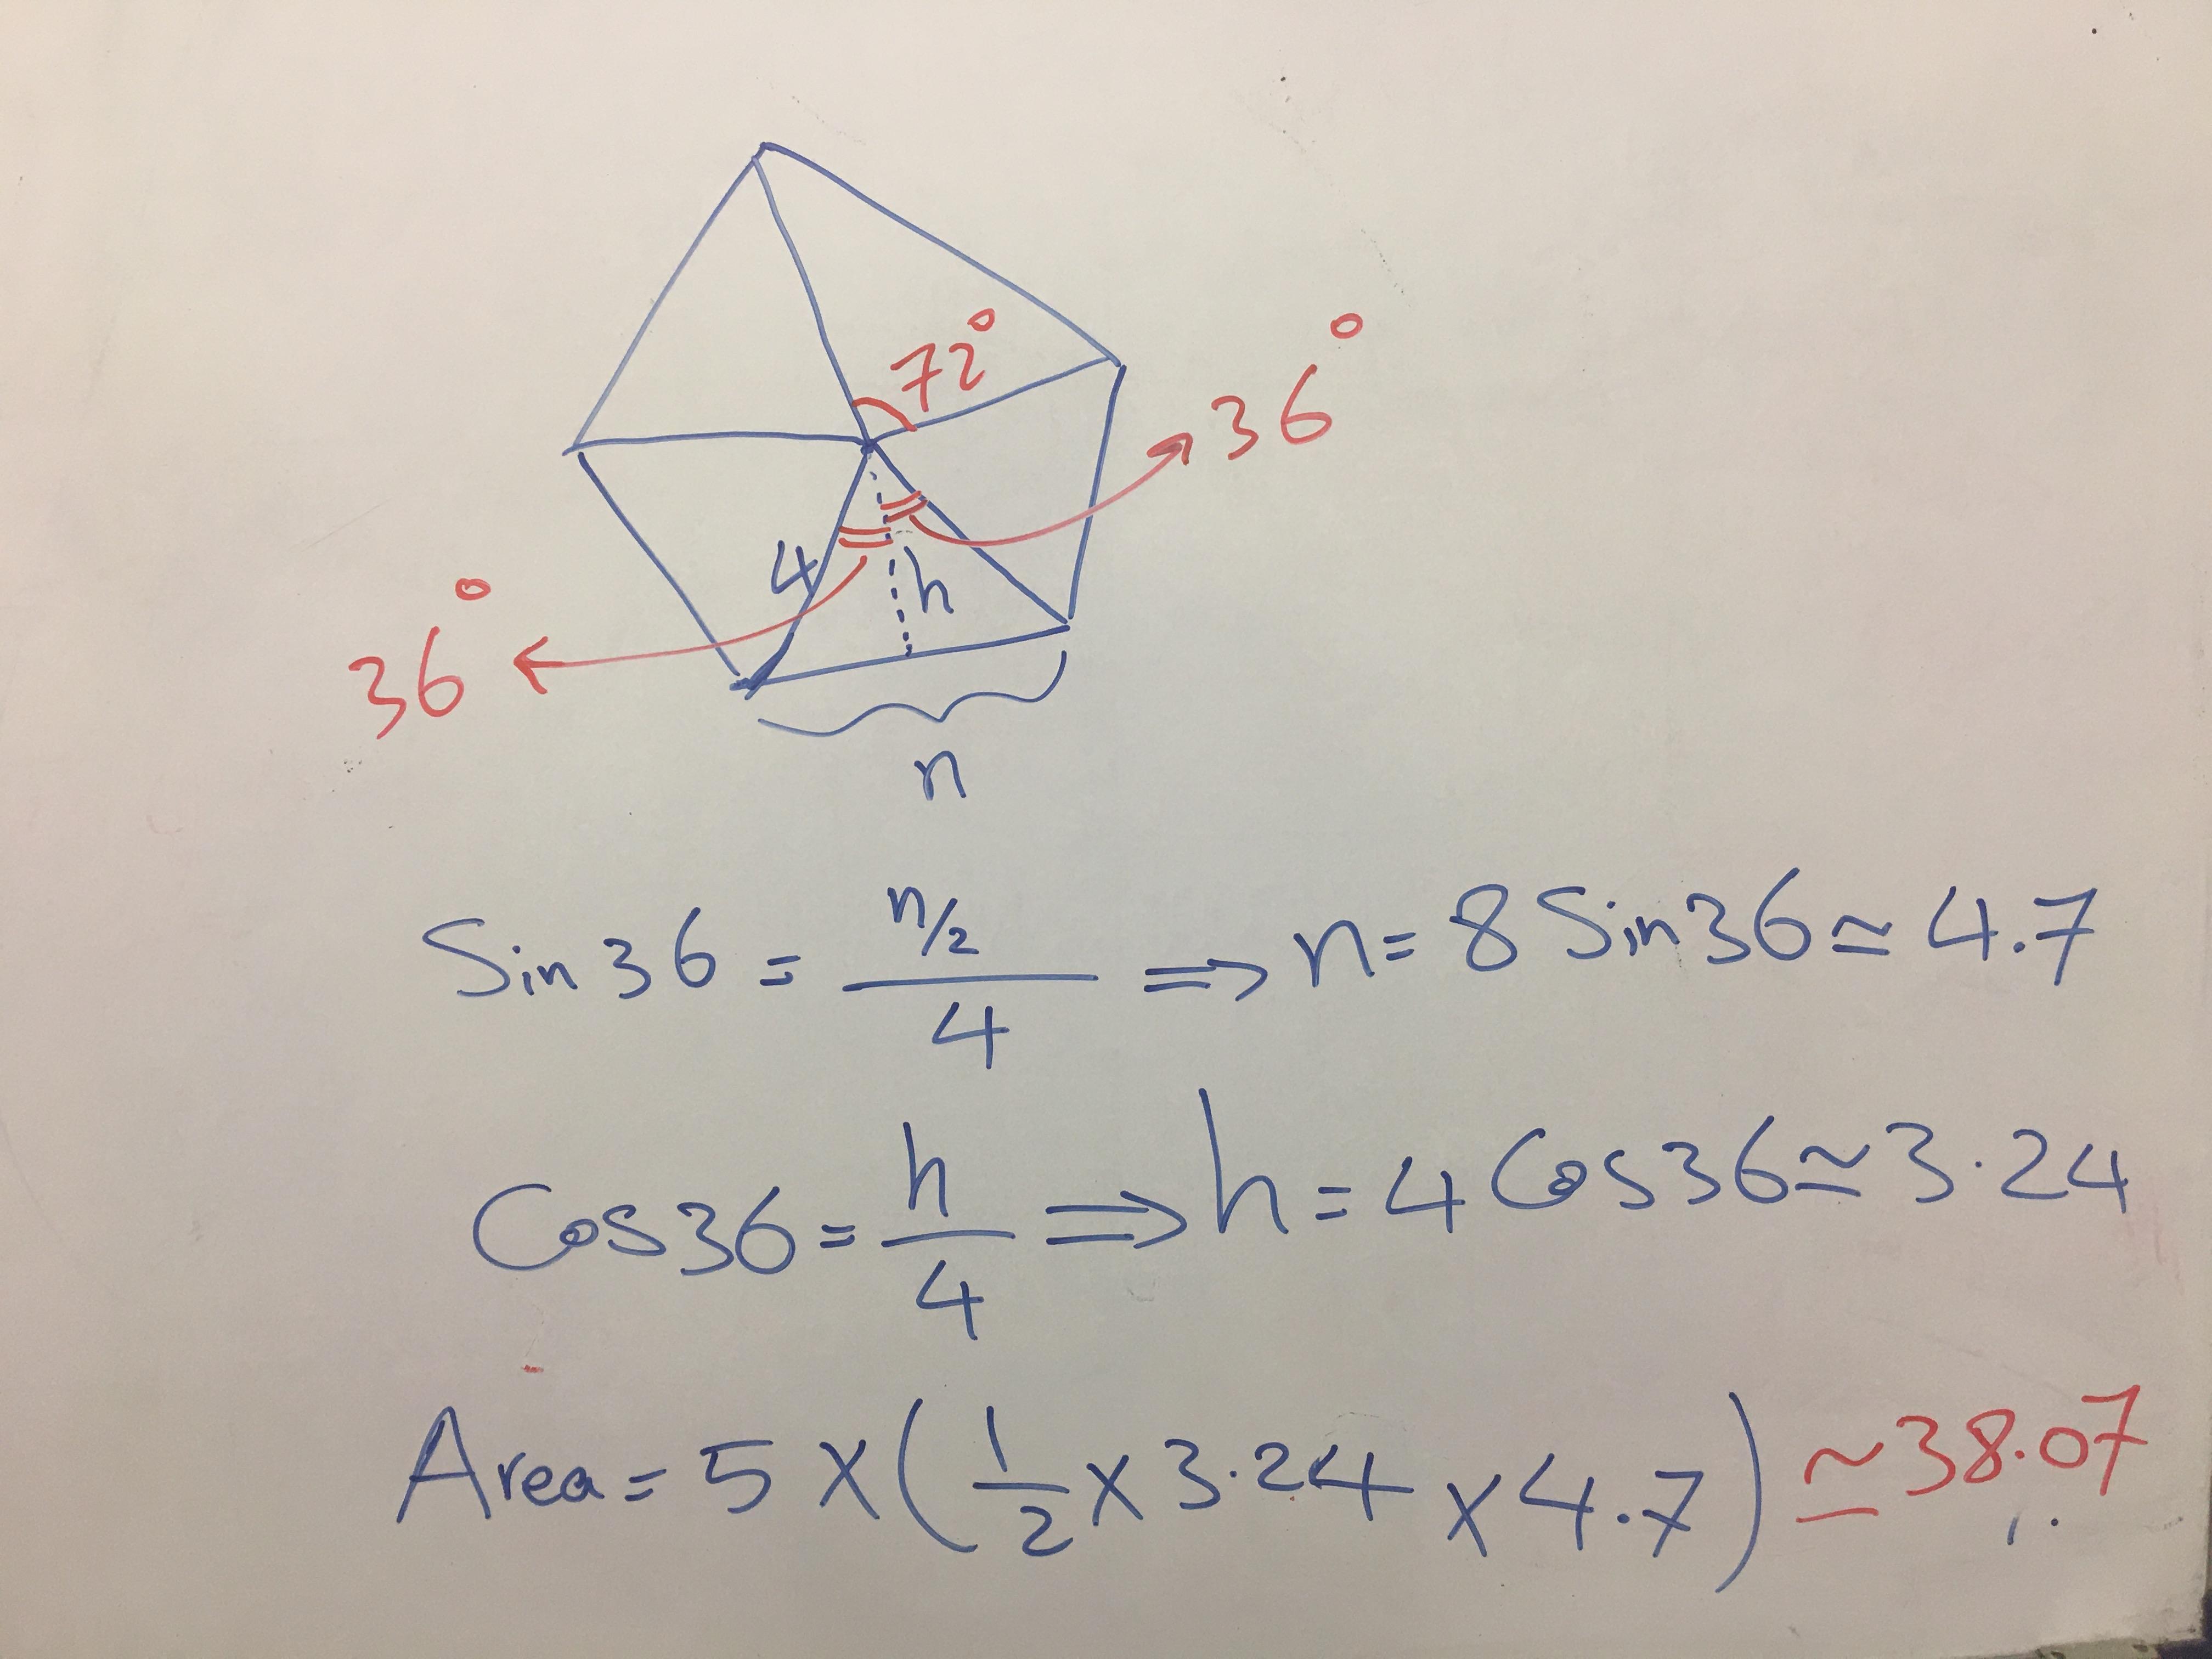 72°
36°
4
h
36°
n
Sin36 = n/2 / 4 ⇒ n = 8 Sin36 ≃ 4.7
Cos36 = h / 4 ⇒ h = 4 Cos36 ≃ 3.24
Area = 5 × (1/2 × 3.24 × 4.7) ≃ 38.07